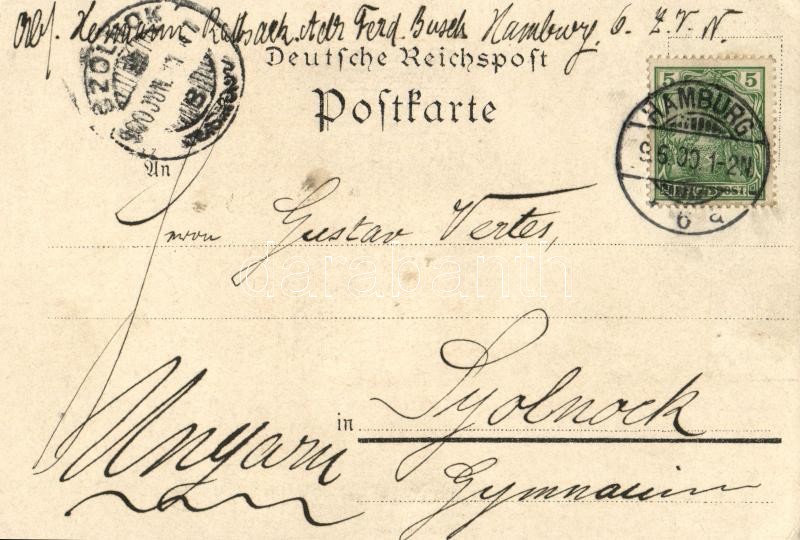 Abs. Hermann Rollsack. Adr Ferd. Busch Hamburg, 6. Z. V. N.
SZOLNOK
Deutsche Reichspost
Postkarte
5 5
HAMBURG
9.6.00 1-2N
6 a
REICHSPOST
900 JUN 11
B
An
Herrn Gustav Vertes,
darabanth
in Szolnock
Ungarn
Gymnasium